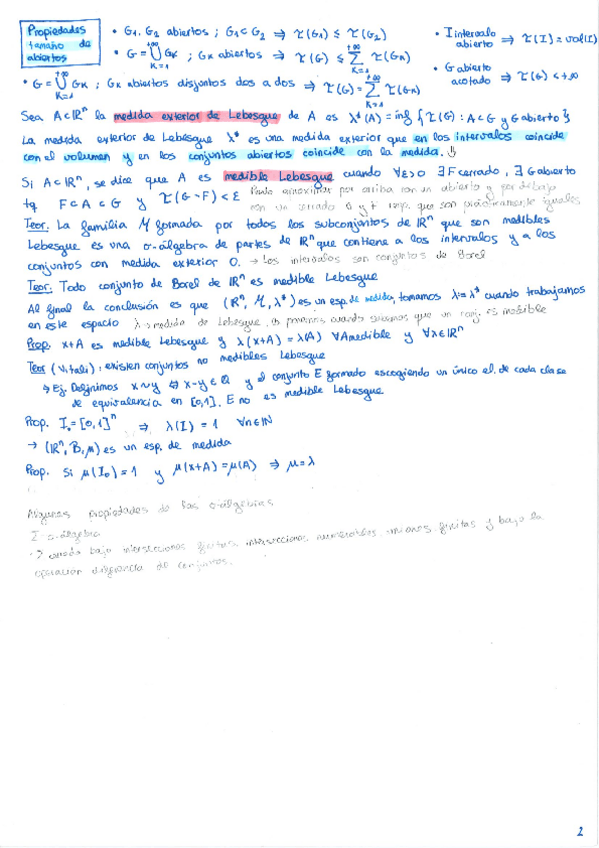 Propiedades tamaño de abiertos
• G₁, G₂ abiertos ; G₁ ⊂ G₂ ⇒ τ(G₁) ≤ τ(G₂)
• G = ⋃_{K=1}^{+∞} G_K ; G_K abiertos ⇒ τ(G) ≤ ∑_{K=1}^{+∞} τ(G_K)
• I intervalo abierto ⇒ τ(I) = vol(I)
• G abierto acotado ⇒ τ(G) < +∞
• G = ⋃_{K=1}^{+∞} G_K ; G_K abiertos disjuntos dos a dos ⇒ τ(G) = ∑_{K=1}^{+∞} τ(G_K)
Sea A⊂ℝⁿ la medida exterior de Lebesgue de A es λ*(A) = inf { τ(G) : A⊂G y G abierto }
La medida exterior de Lebesgue λ* es una medida exterior que en los intervalos coincide
con el volumen y en los conjuntos abiertos coincide con la medida.
Si A⊂ℝⁿ, se dice que A es medible Lebesgue cuando ∀ε>0 ∃F cerrado, ∃G abierto
tq F⊂A⊂G y τ(G-F) < ε Puedo aproximar por arriba con un abierto y por debajo
con un cerrado que son prácticamente iguales
Teor. La familia M formada por todos los subconjuntos de ℝⁿ que son medibles
Lebesgue es una σ-álgebra de partes de ℝⁿ que contiene a los intervalos y a los
conjuntos con medida exterior 0. → Los intervalos son conjuntos de Borel
Teor. Todo conjunto de Borel de ℝⁿ es medible Lebesgue
Al final la conclusión es que (ℝⁿ, M, λ*) es un esp. de medida, tomamos λ=λ* cuando trabajamos
en este espacio λ = medida de Lebesgue, la ponemos cuando sabemos que un conj. es medible
Prop. x+A es medible Lebesgue y λ(x+A) = λ(A) ∀A medible y ∀x∈ℝⁿ
Teor (Vitali): existen conjuntos no medibles Lebesgue
→ Ej. Definimos x∼y ⇔ x-y∈ℚ y el conjunto E formado escogiendo un único el. de cada clase
de equivalencia en [0,1]. E no es medible Lebesgue
Prop. I₀ = [0,1]ⁿ ⇒ λ(I) = 1 ∀n∈ℕ
→ (ℝⁿ, B, μ) es un esp. de medida
Prop. Si μ(I₀) = 1 y μ(x+A) = μ(A) ⇒ μ = λ
Algunas propiedades de las σ-álgebras
Σ σ-álgebra
bajo intersecciones finitas, intersecciones numerables, uniones finitas y bajo la
operación diferencia de conjuntos.
2